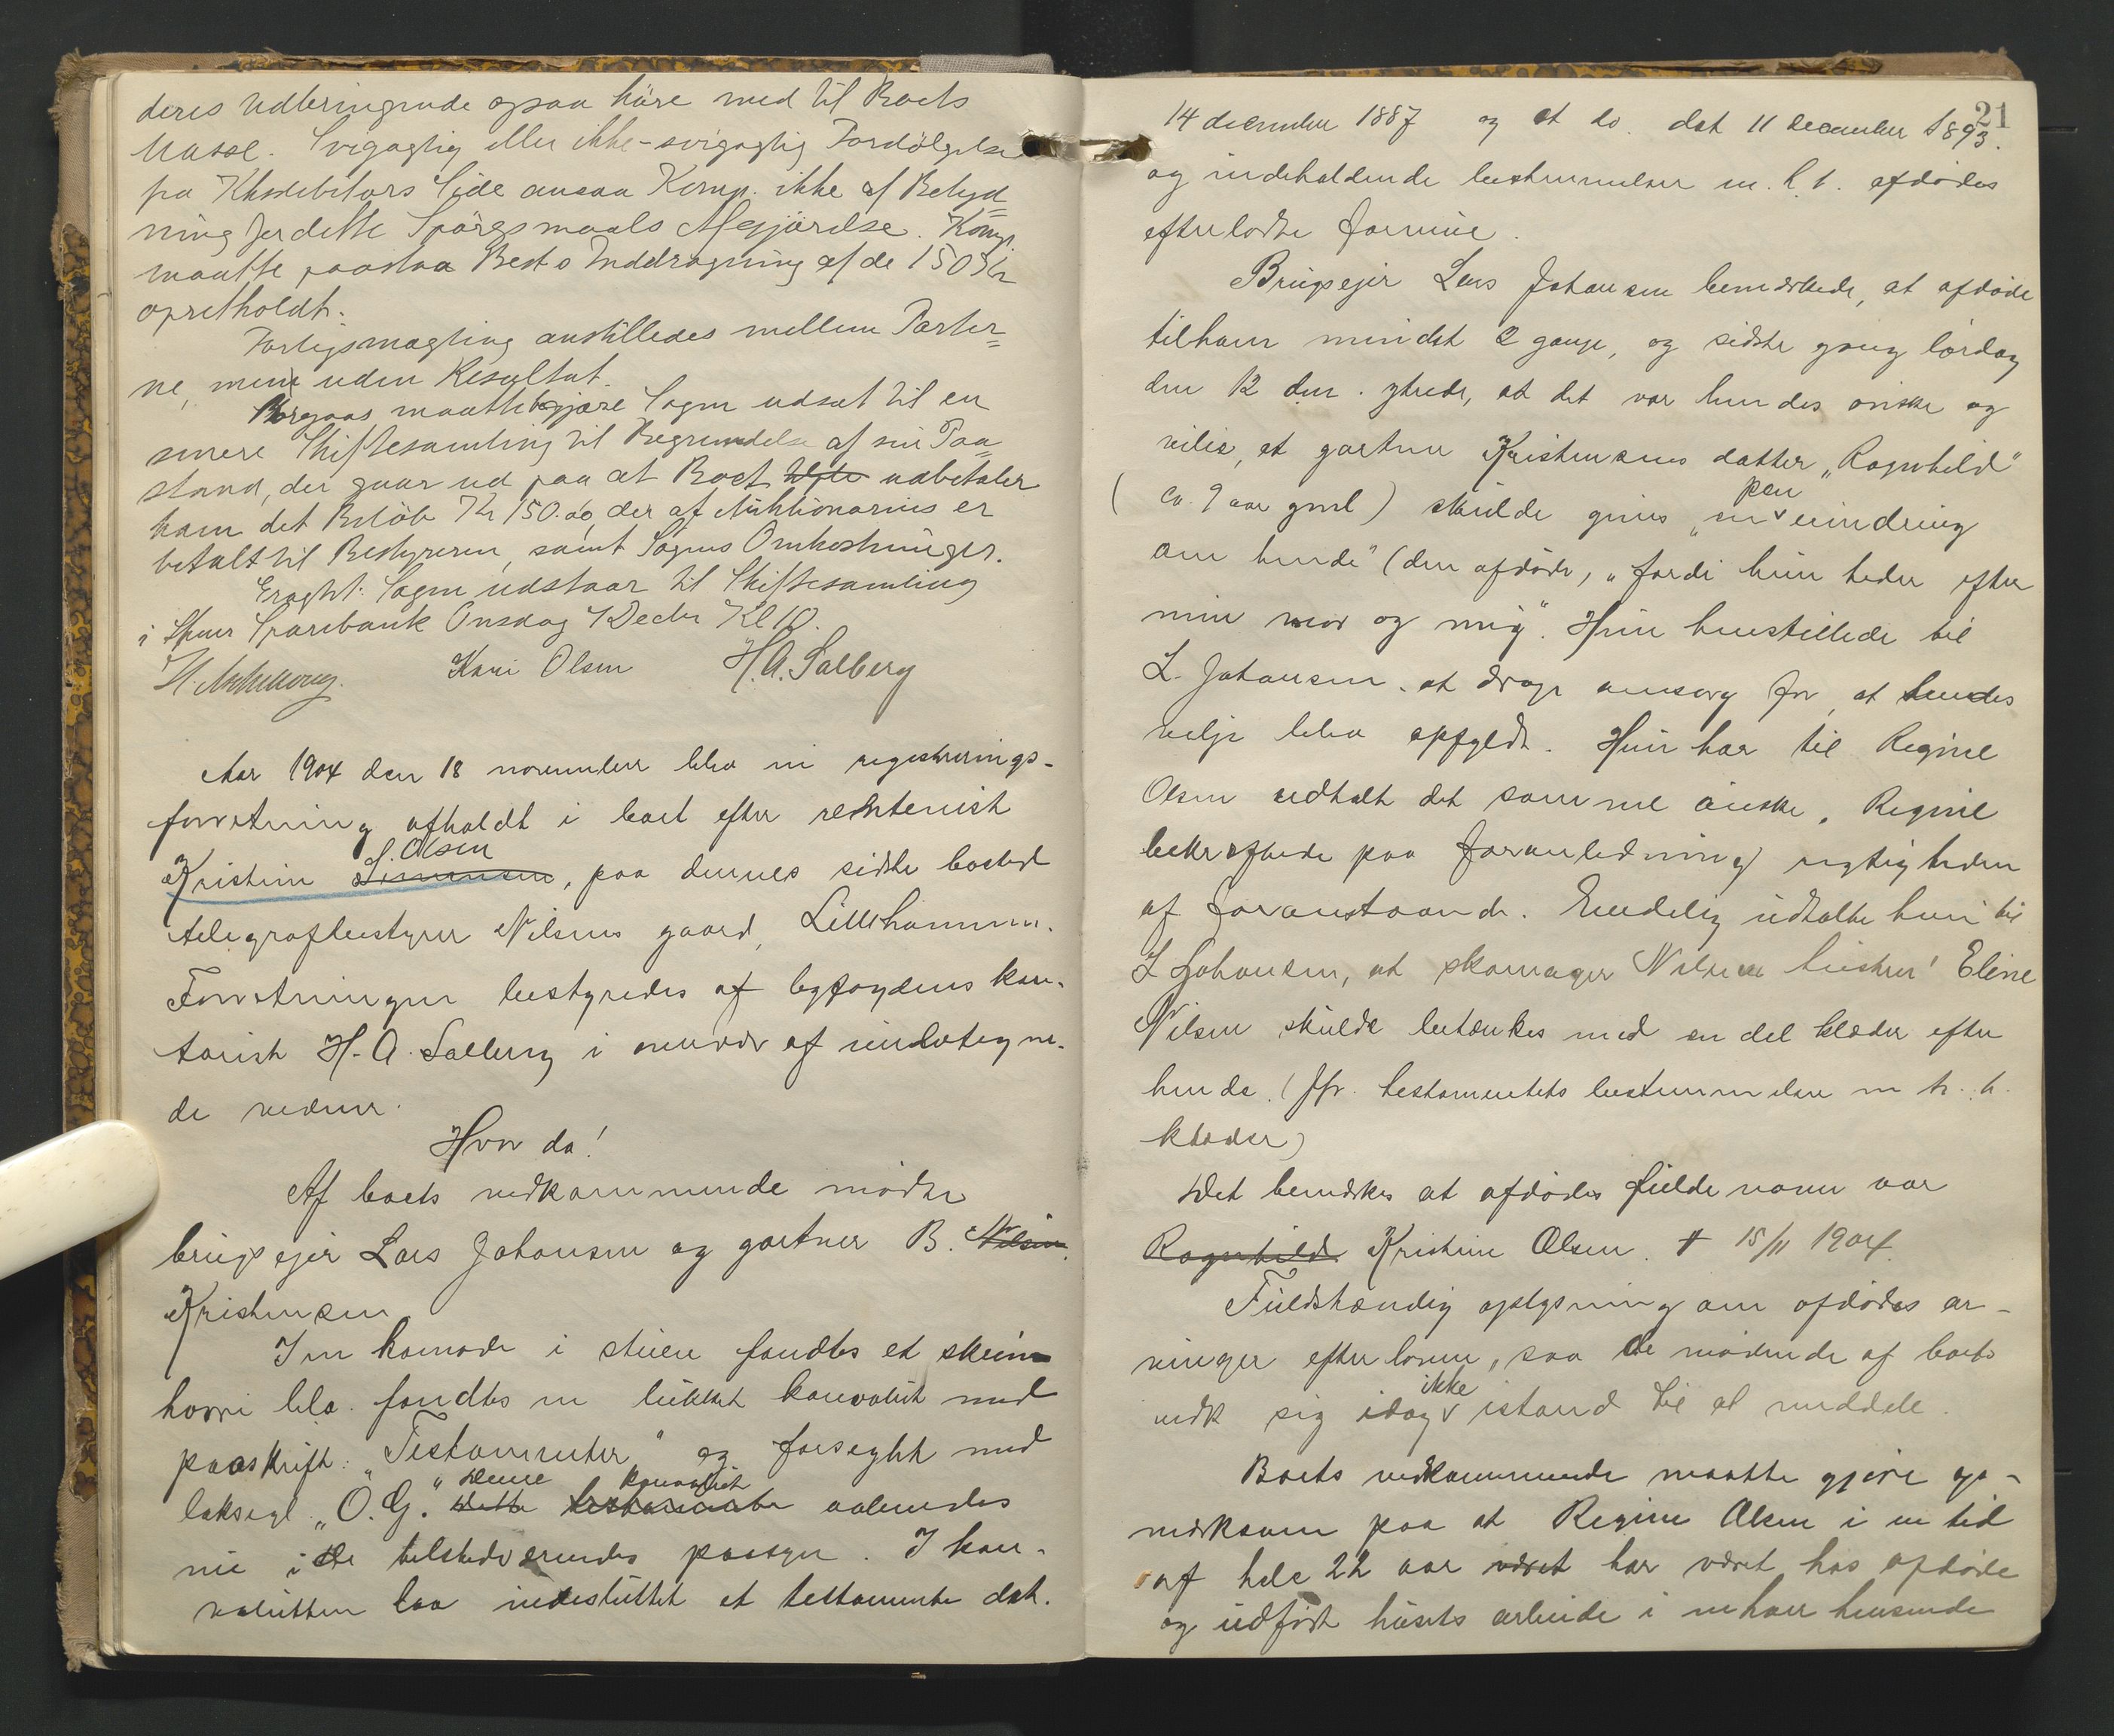 deres Udbringende ogsaa höre med til Boets
Masse. Svigagtig eller ikke-svigagtig Fordölgelse
fra Side ansaa Komp. ikke af Betyd=
ning for dette Spörgsmaals Afgjörelse. Komp.
maatte paastaa Bests Inddragning af de 150 Kr
opretholdt.
Forligsmægling anstilledes mellem Parter=
ne, men uden Resultat.
maatte begjære Sagen udsat til en
senere Skiftesamling til Begrundelse af sin Paa=
stand, der gaar ud paa at Boet udbetaler
ham det Belöb Kr 150.00, der af Auktionarius er
betalt til Bestyreren, samt Sagens Omkostninger.
Eragtet: Sagen udstaar til Skiftesamling
i Sparebank Onsdag 7 Decbr Kl 10.
Kari Olsen H. A. Salberg
Aar 1904 den 18 november blev en registrerings-
forretning afholdt i boet efter rentenist
Kristine Simensen Olsen, paa dennes sidste bosted
telegrafbestyrer Nilsens gaard, Lillehammer.
Forretningen bestyredes af byfogdens kon-
torist H. A. Salberg i nærvær af undertegne-
de vidner.
Hvor da!
Af boets vedkommende mödte
brugseier Lars Johansen og gartner B. Nilsen.
Kristensen
I en komode i stuen fandtes et skrin
hvori bla. fandtes en lukket konvolut med
paaskrift: "Testamenter" og forseglet med
laksegl "O. G." Dette testamente Denne konvolut aabnedes
nu i de tilstedeværendes paasyn. I kon-
volutten laa indesluttet et testamente dat.
21
14 december 1887 og et do. dat 11 december 1893.
og indeholdende bestemmelser m. h. t. afdödes
efterladte formue.
Brugseier Lars Johansen bemærkede, at afdöde
til ham mindst 2 gange, og sidste gang lördag
den 12 dm. ytrede, at det var hendes önske og
vilje, at gartner Kristensens datter "Ragnhild"
(ca. 9 aar gml) skulde gives "en pen erindring
om hende" (den afdöde, "fordi hun heder efter
min mor og mig". Hun henstillede til
L. Johansen at drage omsorg for, at hendes
vilje blev opfyldt. Hun har til Regine
Olsen udtalt det samme önske. Regine
bekræftede paa foranledning rigtigheden
af foranstaande. Endelig udtalte hun til
L Johansen, at skomager Nilsens hustru Eline
Nilsen skulde betænkes med en del klæder efter
hende. (Jfr. testamentets bestemmelse m. h. t.
klæder)
Det bemerkes at afdödes fulde navn var
Ragnhild Kristine Olsen. † 15/11 1904.
Fuldstændig oplysning om afdödes ar-
vinger efter loven, saa de mödende af boets
vedk sig idag ikke istand til at meddele.
Boets vedkommende maatte gjöre op-
merksom paa at Regine Olsen i en tid
af hele 22 aar været har været hos afdöde
og udfört husets arbeide i enhver henseende